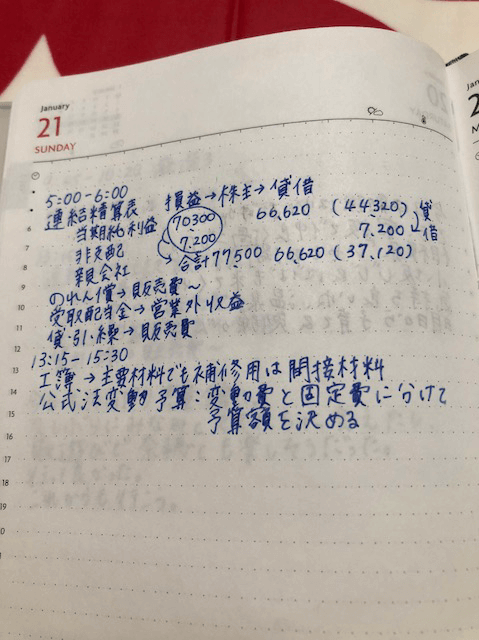 January
21
SUNDAY
5:00-6:00
連結精算表 損益→株主→貸借
当期純利益 70300 66,620 (44320) 貸
非支配 7.200 7.200 借
親会社 合計77500 66,620 (37,120)
のれん償→販売費～
受取配当金→営業外収益
貸・引・繰→販売費
13:15-15:30
工簿→主要材料でも補修用は間接材料
公式法変動予算:変動費と固定費に分けて
予算額を決める
6
7
8
9
10
11
12
13
14
15
16
17
18
19
20